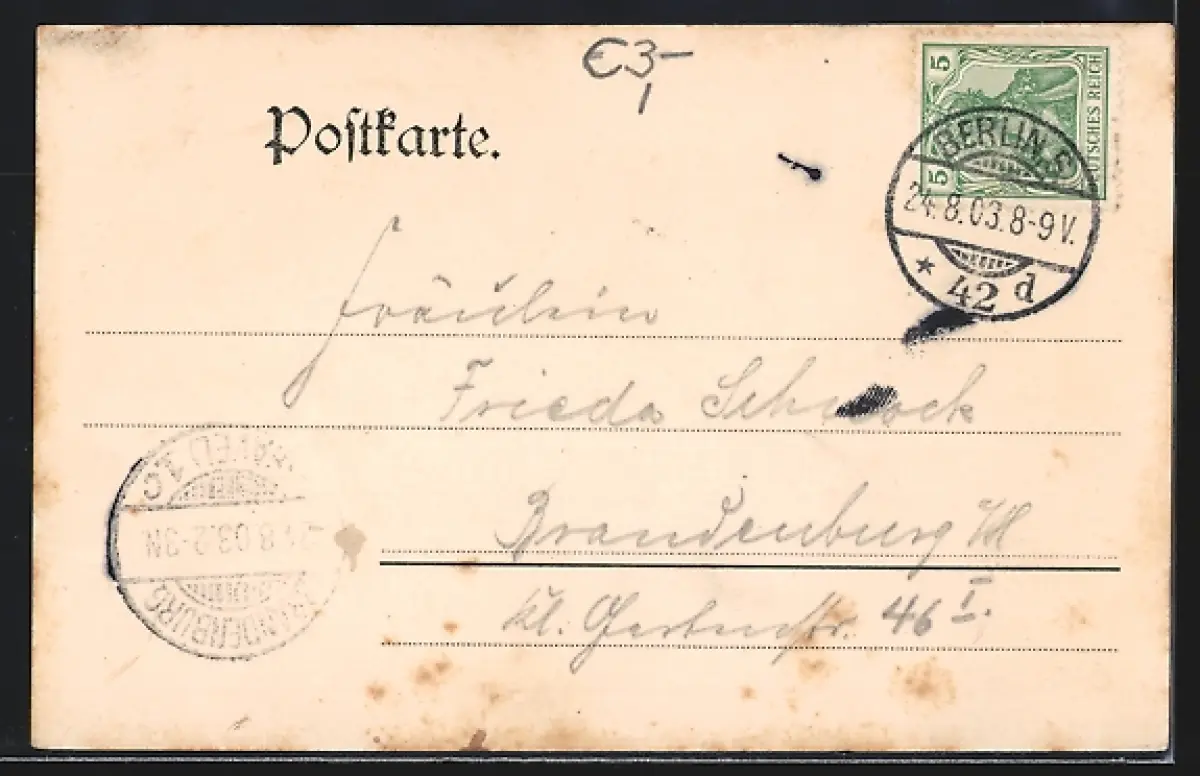 €3,-
Postkarte.
5
5
DEUTSCHES REICH
BERLIN.S.
24.8.03.8-9V.
* 42 d
Fräulein
Frieda
Brandenburg a/H
kl. Gartenstr. 46 I.
BRANDENBURG
8.03.2-3N
(HAVEL) 1.C